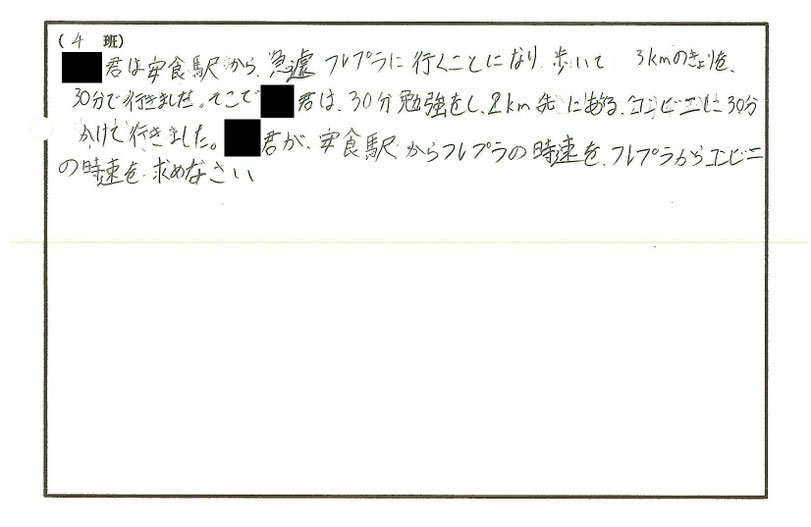 (4 班)
君は安食駅から、急遽フレプラに行くことになり、歩いて 3kmのきょりを、
30分で行きました。そこで君は、30分勉強をし、2km先にある、コンビニに30分
かけて行きました。君が、安食駅からフレプラの時速を、フレプラからコンビニ
の時速を、求めなさい